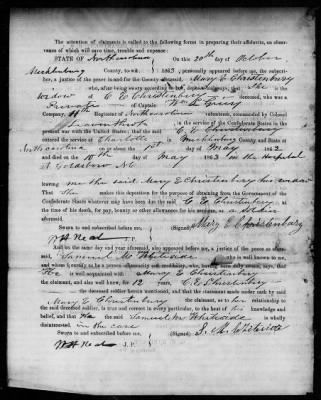 The attention of claimants is called to the following forms in preparing their affidavits, an observance
of which will save time, trouble and expense:
STATE OF North carolina On this 20th day of October
Mecklenburg County, to-wit: 1863, personally appeared before me, the subscriber,
a justice of the peace in and for the County aforesaid, Mary E Christenbury
who, after being sworn according to law, deposes and says, that She is the
widow of C E Christenbury deceased, who was a
Private of Captain Wm L Grier
Company, Regiment of North carolina volunteers, commanded by Colonel
in the service of the Confederate States in the
present war with the United States; that the said C E Christenbury
entered the service at Charlotte Mecklenburg County and State of
North carolina on or about the 1st day of May 1862
and died on the 10th day of May 1863 in the Hospital
at Goldsboro N C
leaving me the said Mary E Christenbury his widow
That She makes this deposition for the purpose of obtaining from the Government of the
Confederate States whatever may have been due the said C. E. Christenbury, at
the time of his death, for pay, bounty or other allowances for his services, as a
Sworn to and subscribed before me (Signed) Mary E Christenbury
J. P.
And on the same day and year aforesaid, also appeared before me, a justice of the peace as aforesaid,
Samuel Mc Whiteside who is well known to me,
He is well acquainted with Mary E Christenbury
the claimant, and also well knew, for 12 years, C. E. Christenbury
the deceased soldier herein mentioned, and that the statement made under oath by said
Mary E Christenbury the claimant, as to her relationship to
the said deceased soldier, is true and correct in every particular, to the best of his knowledge and
belief, and that He the said Samuel Mc Whiteside is wholly
disinterested, in the case
Sworn to and subscribed before me (Signed)
J. P.